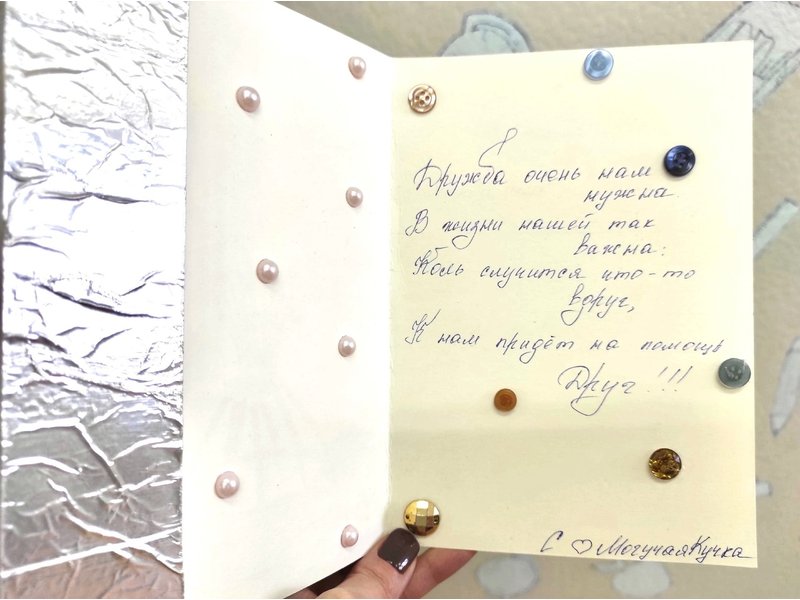 Дружба очень нам
нужна.
В жизни нашей так
важна:
Коль случится что-то
вдруг,
К нам придёт на помощь
Друг!!!
С ♡ МогучаяКучка